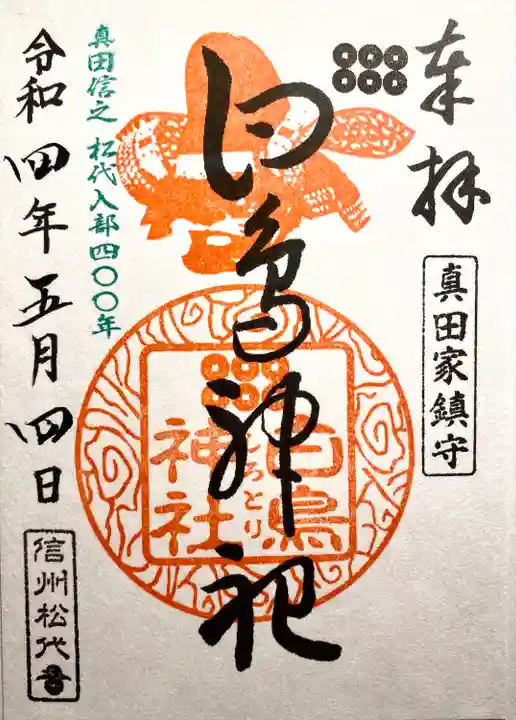 奉拝
真田家鎮守
白鳥神社
白鳥
しろとり
神社
真田信之 松代入部四〇〇年
令和四年五月四日
信州松代